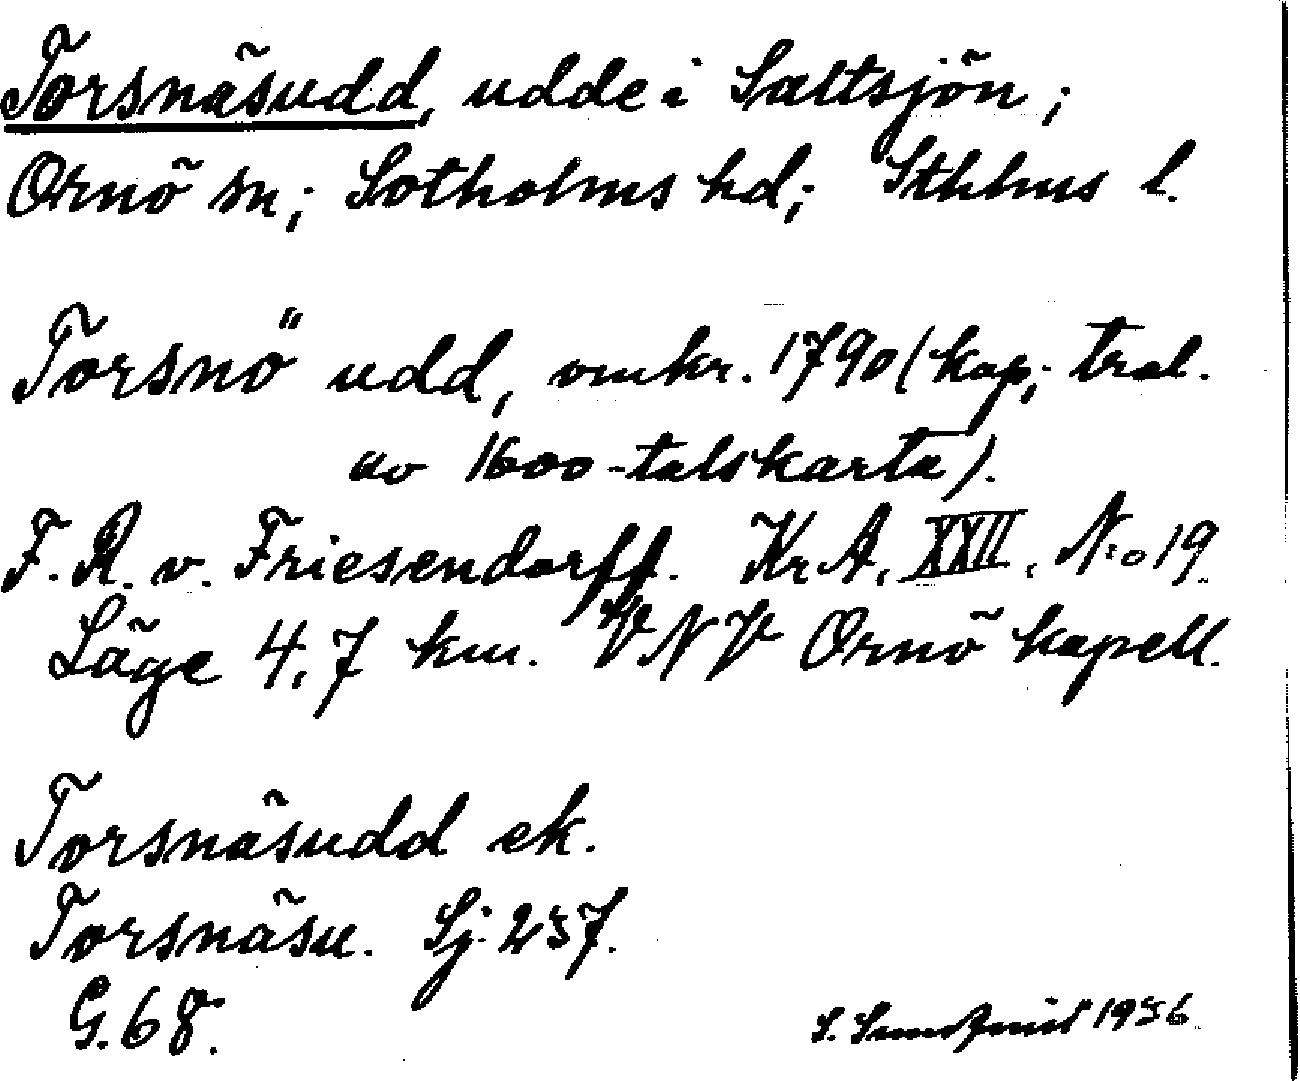 Torsnäsudd, udde i Saltsjön;
Ornö sn; Sotholms hd; Sthlms l.
Torsnö udd, omkr. 1790 (kop; tral.
av 1600-talskarta).
F. R. v. Friesendorff. Kr A, XXII, N:o 19
Läge 4,7 km. VNV Ornö kapell.
Torsnäsudd ek.
Torsnäsu. Sj 257.
G. 68.
S. Sundqvist 1956